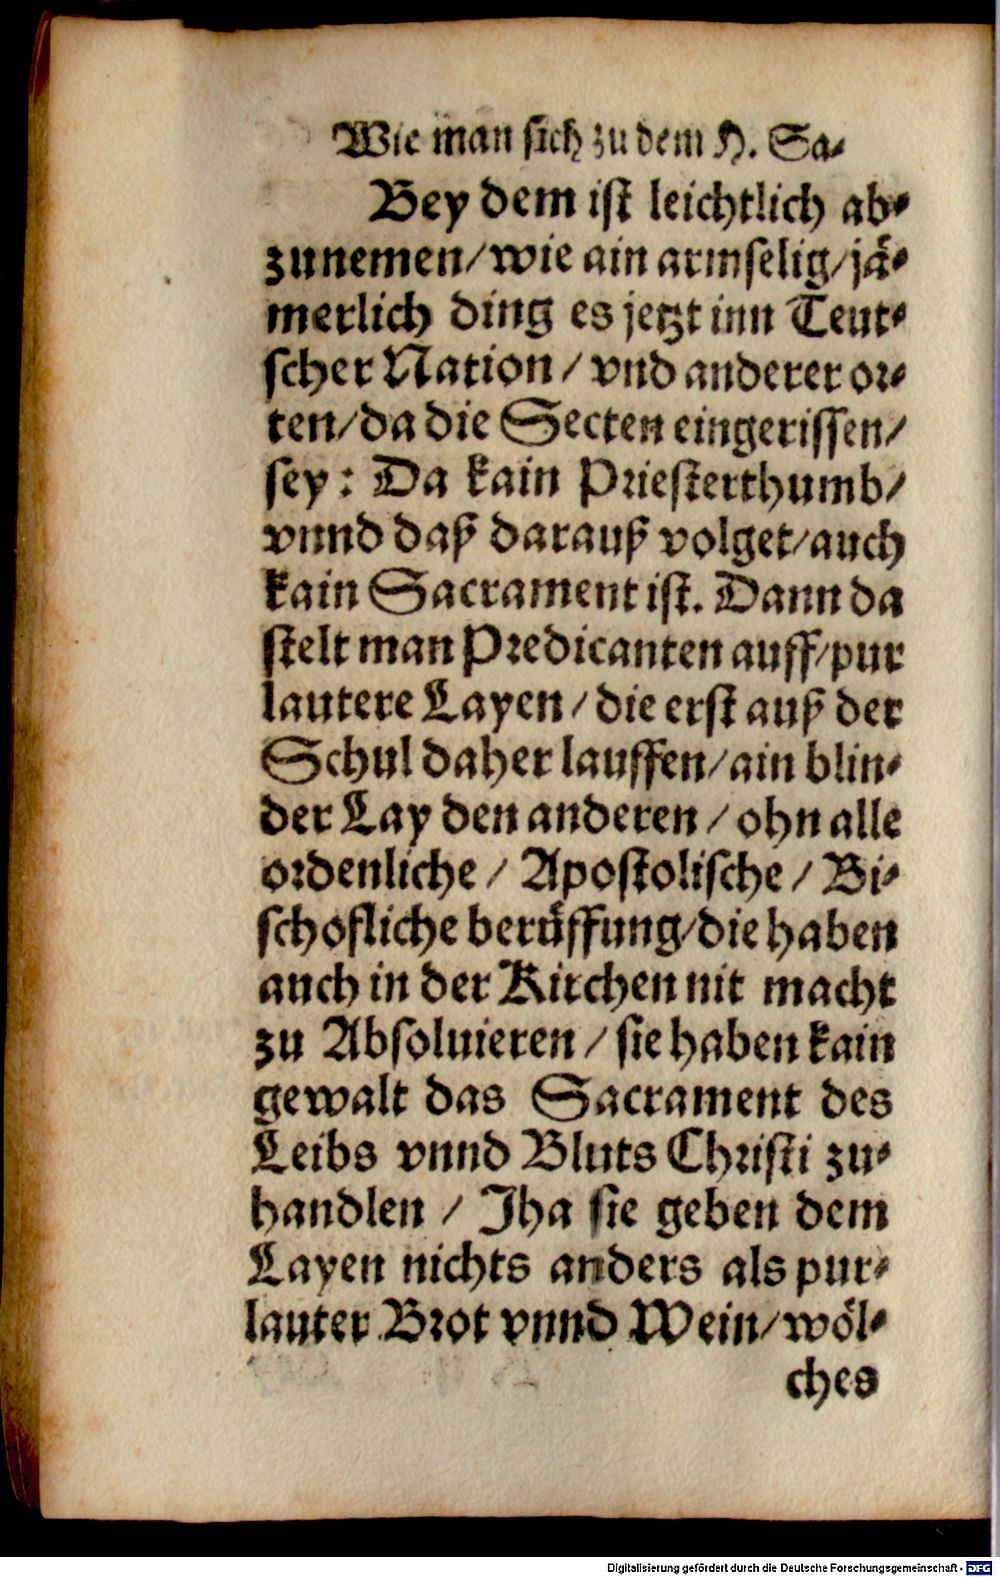 Wie man sich zu dem H. Sa-
Bey dem ist leichtlich ab-
zunemen/wie ain armselig/jä-
merlich ding es jetzt inn Teut-
scher Nation / vnd anderer or-
ten/da die Secten eingerissen/
sey: Da kain Priesterthumb/
vnnd daß darauß volget/auch
kain Sacrament ist. Dann da
stelt man Predicanten auff/pur
lautere Layen / die erst auß der
Schul daher lauffen/ain blin-
der Lay den anderen / ohn alle
ordenliche / Apostolische / Bi-
schofliche berůffung/die haben
auch in der Kirchen nit macht
zu Absoluieren / sie haben kain
gewalt das Sacrament des
Leibs vnnd Bluts Christi zu-
handlen / Jha sie geben dem
Layen nichts anders als pur-
lauter Brot vnnd Wein/wöl-
ches
Digitalisierung gefördert durch die Deutsche Forschungsgemeinschaft - DFG